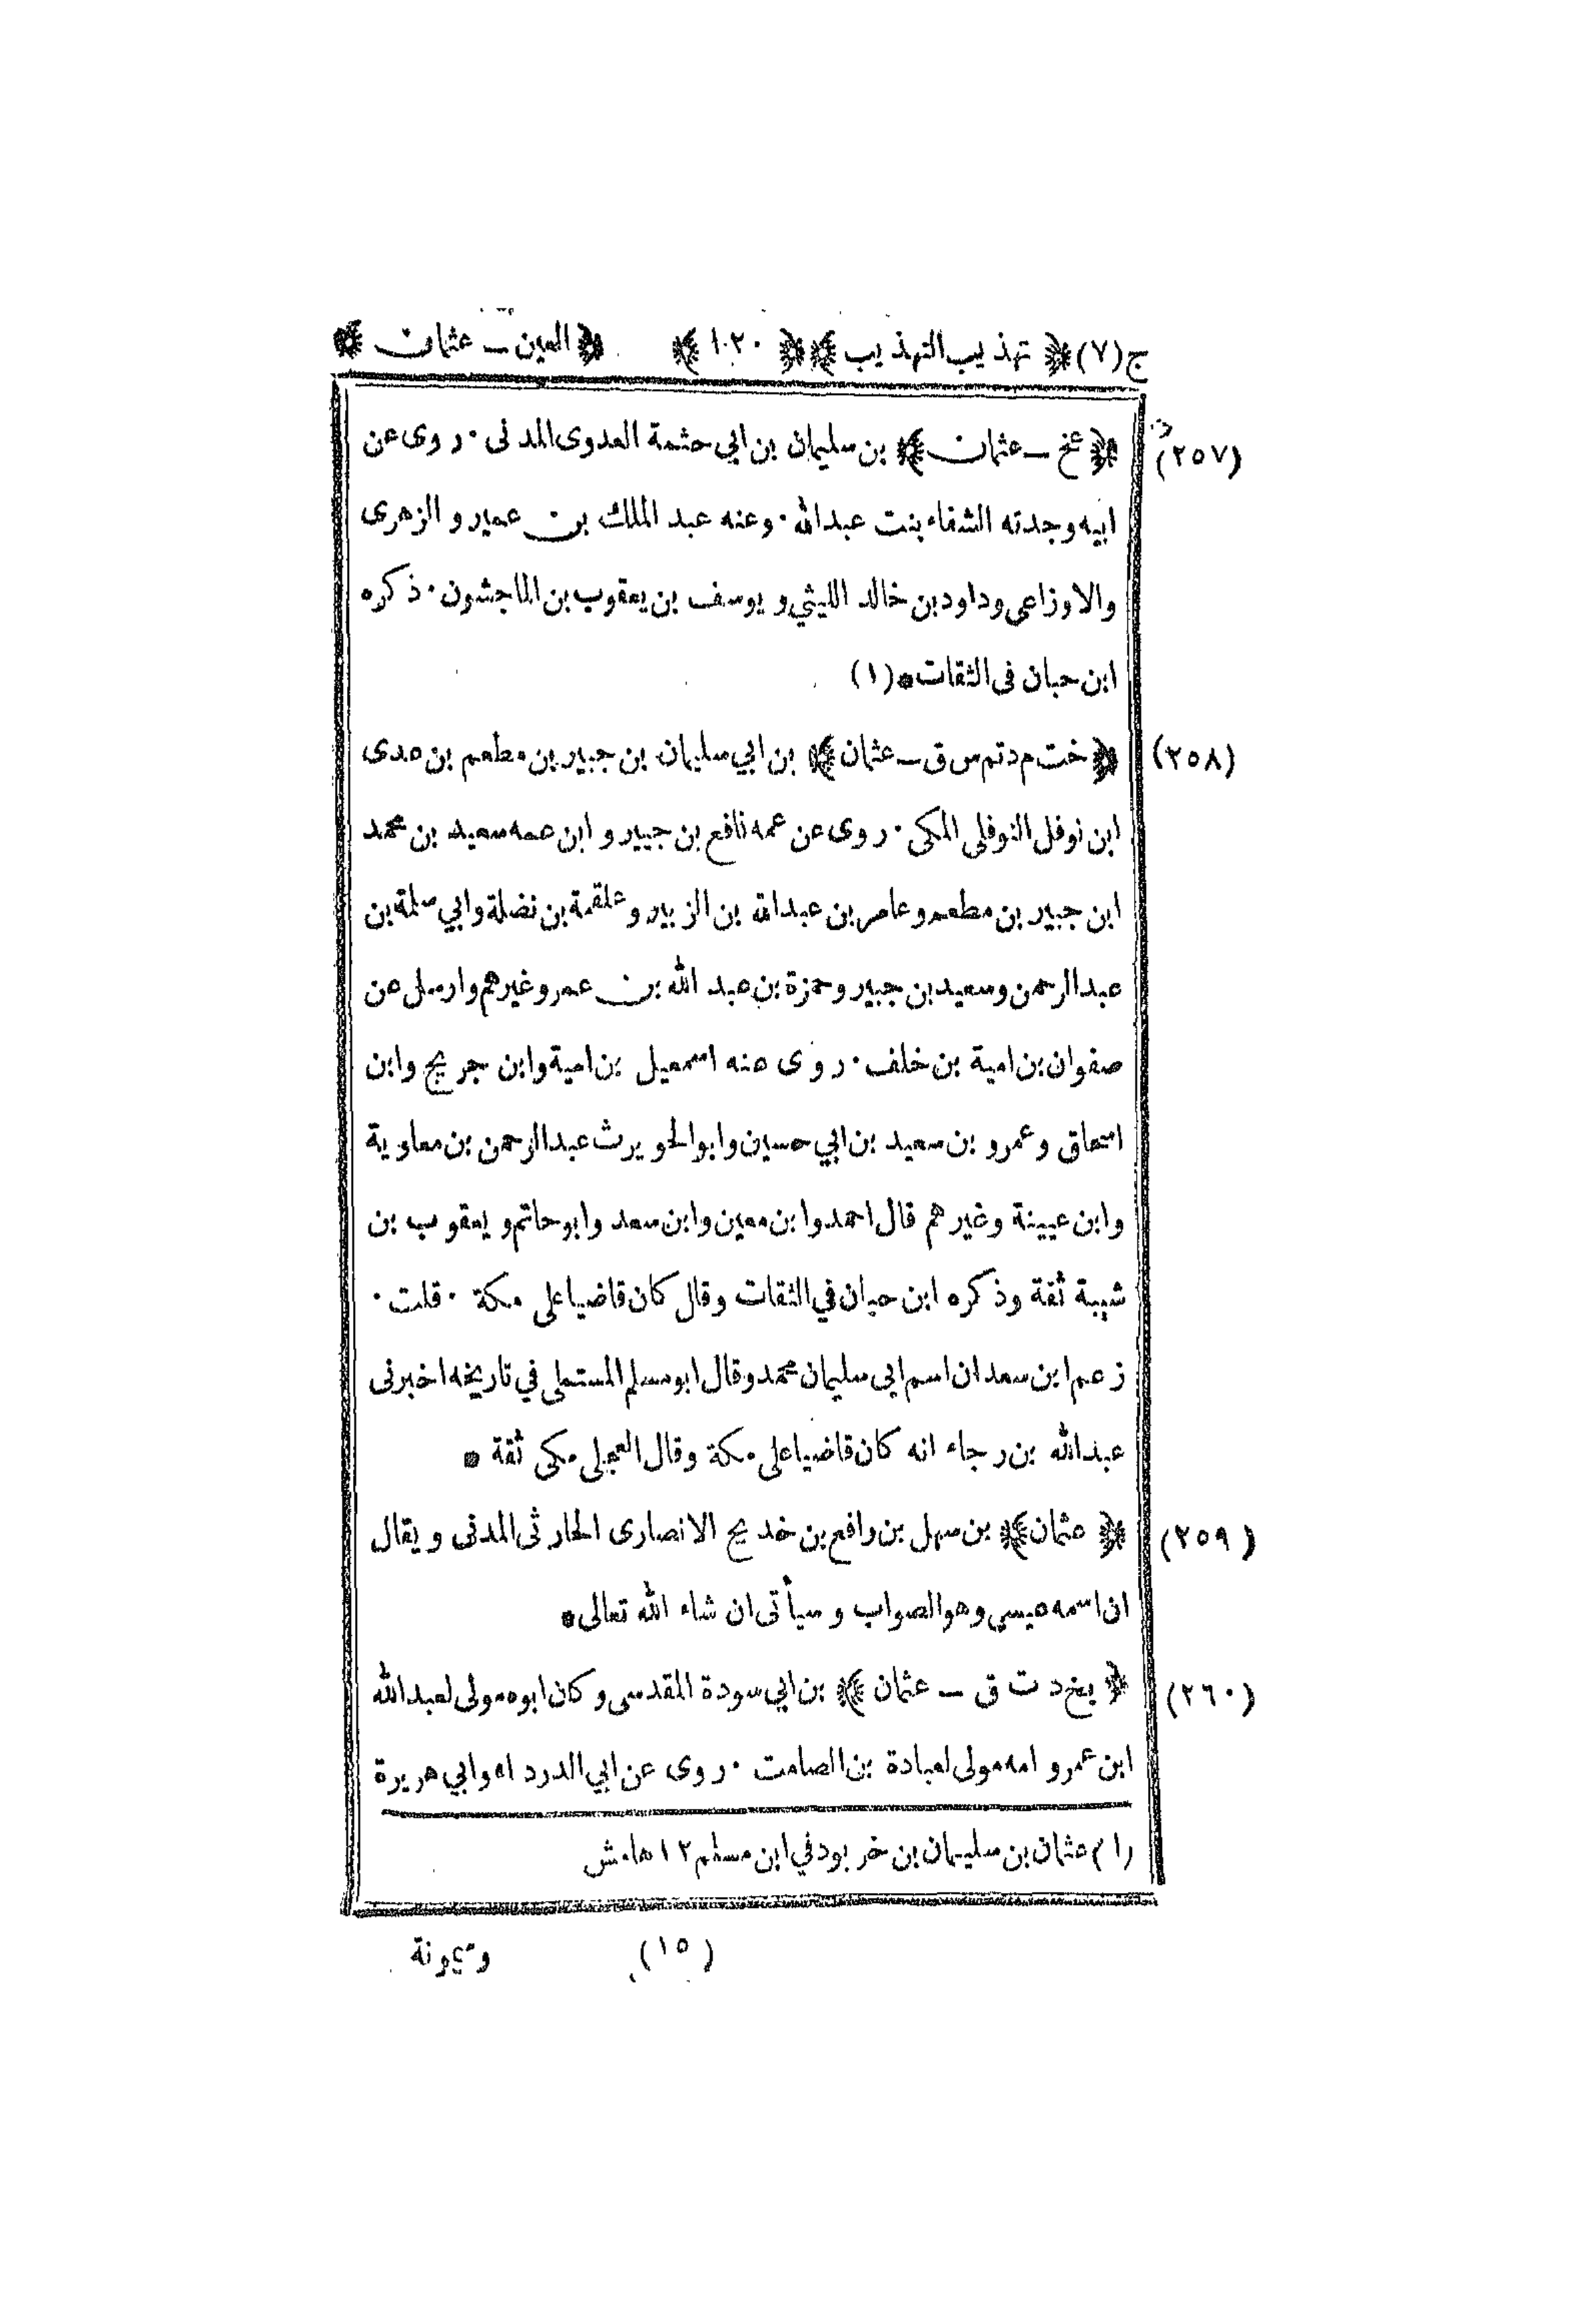 ج(٧) ﴿ تهذيب التهذيب ﴾ ﴿ ١٢٠ ﴾ ﴿ العين ــ عثمان ﴾
(٢٥٧) ﴿ عخ ــ عثمان ﴾ بن سليمان بن ابي حثمة العدوى المدنى · روى عن
ابيه وجدته الشفاء بنت عبدالله · وعنه عبد الملك بن عمير و الزهرى
والاوزاعى وداود بن خالد الليثي و يوسف بن يعقوب بن الماجشون · ذكره
ابن حبان فى الثقات * (١)
(٢٥٨) ﴿ خت م د تم س ق ــ عثمان ﴾ بن ابي سليمان بن جبير بن مطعم بن عدى
ابن نوفل النوفلى المكى · روى عن عمه نافع بن جبير و ابن عمه سعيد بن محمد
ابن جبير بن مطعم و عامر بن عبدالله بن الزبير و علقمة بن نضلة وابي سلمة بن
عبدالرحمن وسعيد بن جبير وحمزة بن عبد الله بن عمر وغيرهم وارسل عن
صفوان بن امية بن خلف · روى عنه اسمعيل بن امية وابن جريج وابن
اسحاق وعمرو بن سعيد بن ابي حسين وابوالحويرث عبدالرحمن بن معاوية
وابن عيينة وغيرهم قال احمد وابن معين وابن سعد وابوحاتم و يعقوب بن
شيبة ثقة وذكره ابن حبان في الثقات وقال كان قاضيا على مكة · قلت ·
زعم ابن سعد ان اسم ابى سليمان محمد وقال ابومسلم المستملى في تاريخه اخبرنى
عبدالله بن رجاء انه كان قاضيا على مكة وقال العجلى مكى ثقة *
(٢٥٩) ﴿ عثمان ﴾ بن سهل بن رافع بن خديج الانصارى الحارثى المدنى و يقال
ان اسمه عيسى وهو الصواب و سيأتى ان شاء الله تعالى *
(٢٦٠) ﴿ بخ د ت ق ــ عثمان ﴾ بن ابي سودة المقدسى و كان ابوه مولى لعبدالله
ابن عمرو امه مولى لعبادة بن الصامت · روى عن ابي الدرداء وابي هريرة
(١) عثمان بن سليمان بن خربوذ في ابن مسلم ١٢ هامش
(١٥) وميمونة